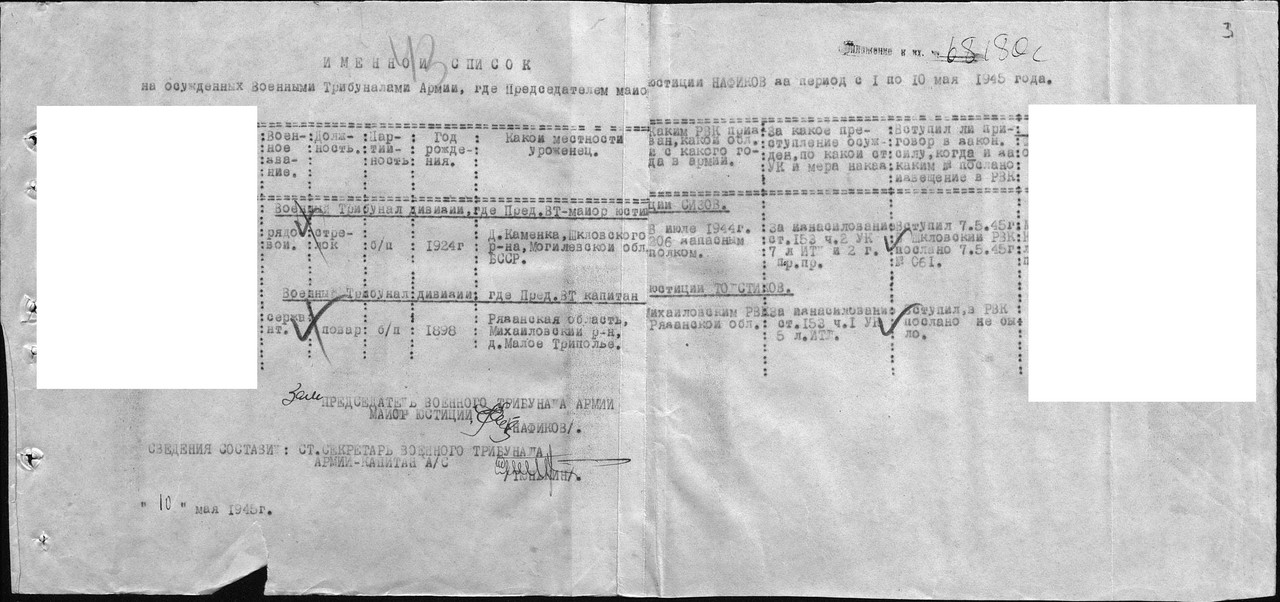 3
Приложение к вх. № 68180с
43
ИМЕННОЙ СПИСОК
на осужденных Военными Трибуналами Армии, где Председателем майо юстиции НАФИКОВ за период с 1 по 10 мая 1945 года.
Воен- Долж- Пар- Год Какой местности Каким РВК приз За какое пре- Вступил ли при-
ное ность. тий- рожде- уроженец. ван, какой обл. ступление осуж- говор в закон.
зва- ность ния. и с какого го- ден, по какой ст силу, когда и за
ние. да в армии. УК и мера нака каким № послано
извещение в РВК
Военный Трибунал дивизии, где Пред.ВТ-майор юсти ции СИЗОВ.
рядо стре- б/п 1924г Д.Каменка, Шкловского В июле 1944г. За изнасиловани Вступил 7.5.45г
вой. лок р-на, Могилевской обл 206 запасным ст.153 ч.2 УК Шкловский РВК
БССР. полком. 7 л ИТЛ и 2 г. послано 7.5.45г
п.пр. № 061.
Военный Трибунал дивизии, где Пред.ВТ капитан юстиции ТОЛСТИКОВ.
сержа повар б/п 1898 Рязанская область, Михайловским РВ За изнасиловани Вступил, в РВК
нт. Михайловский р-н, Рязанской обл. ст.153 ч.1 УК послано не бы
д.Малое Триполье. 5 л.ИТЛ. ло.
Зам ПРЕДСЕДАТЕЛЬ ВОЕННОГО ТРИБУНАЛА АРМИИ
МАЙОР ЮСТИЦИИ
/НАФИКОВ/.
СВЕДЕНИЯ СОСТАВИЛ: СТ.СЕКРЕТАРЬ ВОЕННОГО ТРИБУНАЛА
АРМИИ-КАПИТАН А/С
" 10 " мая 1945г.